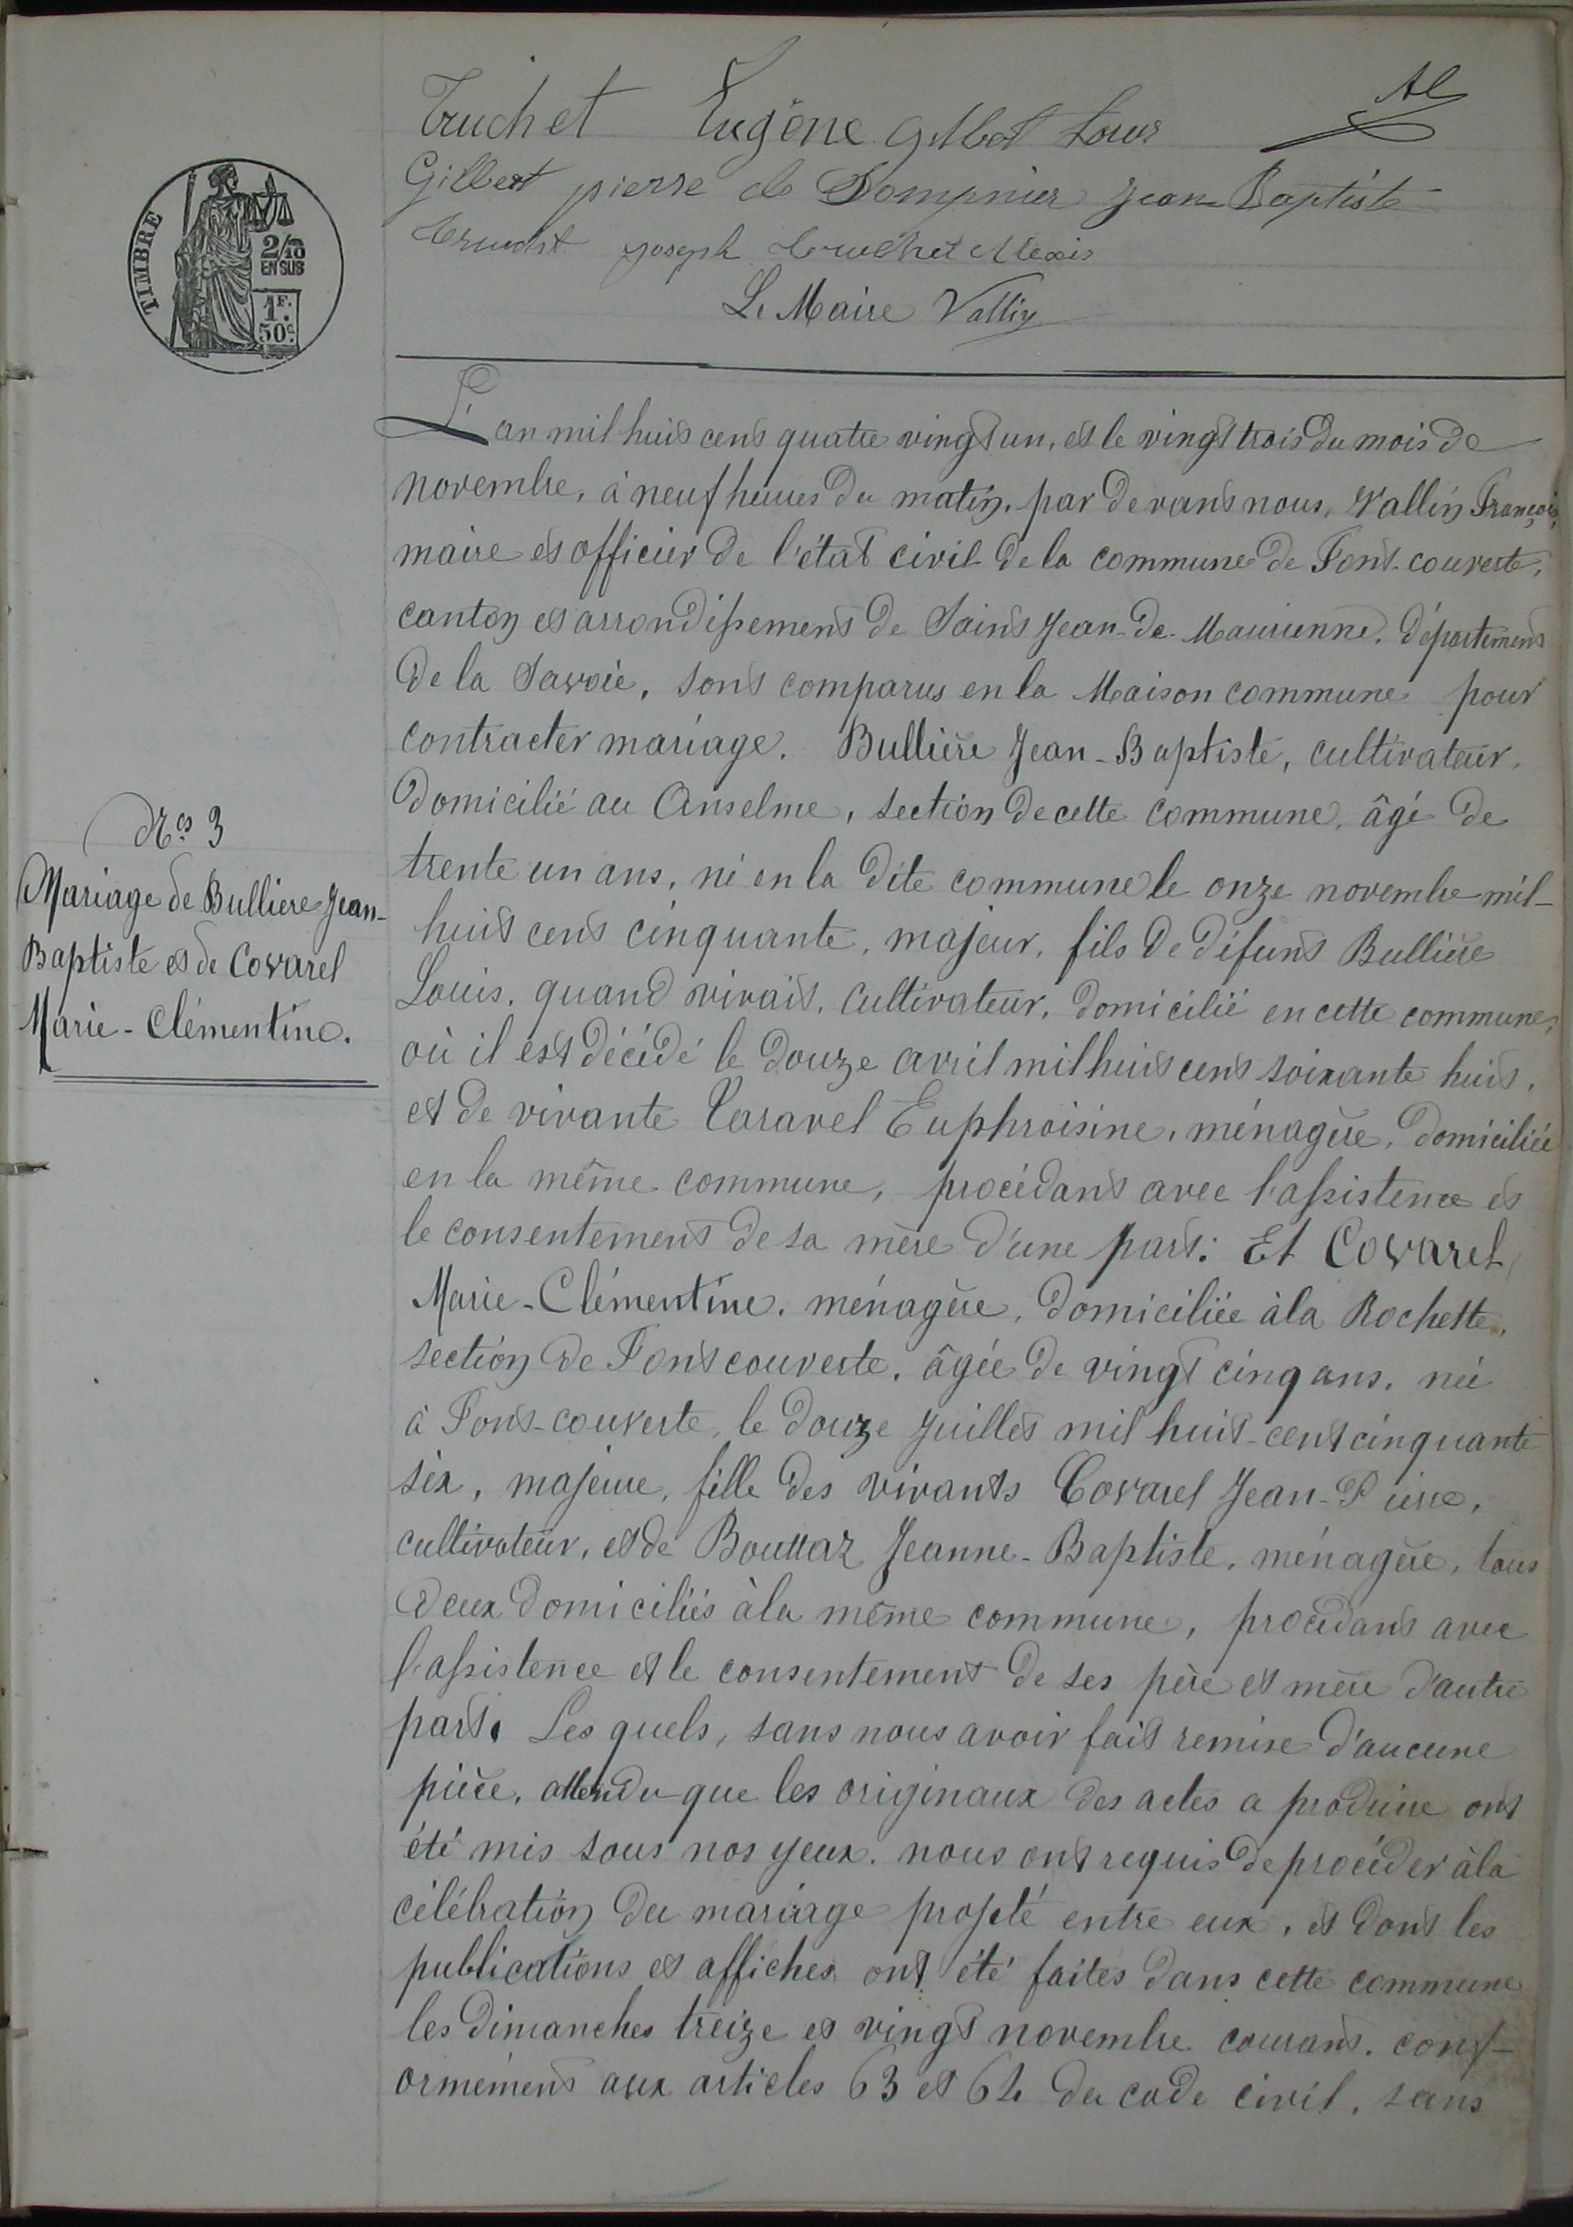 Truchet Eugène Gilbert Louis
Gilbert pierre de Dompnier Jean Baptiste
Truchet joseph truchet Alexis
Le Maire Vallin
TIMBRE
2/10
EN SUS
1F.
50c.
L'an mil huit cent quatre vingt un, et le vingt trois du mois de
novembre, à neuf heures du matin, par devant nous, Vallin François,
maire et officier de l'état civil de la commune de Font-couverte,
canton et arrondissement de Saint Jean-de-Maurienne, département
de la Savoie, sont comparus en la Maison commune pour
contracter mariage. Bullière Jean-Baptiste, cultivateur,
domicilié au Anselme, section de cette commune, âgé de
trente un ans, né en la dite commune le onze novembre mil-
huit cent cinquante, majeur, fils de défunt Bullière
Louis, quand vivait, cultivateur, domicilié en cette commune,
où il est décédé le douze avril mil huit cent soixante huit,
et de vivante Taravel Euphroisine, ménagère, domiciliée
en la même commune, procédant avec l'assistence et
le consentement de sa mère d'une part: Et Covarel
Marie-Clémentine, ménagère, domiciliée à la Rochette,
section de Font couverte, âgée de vingt cinq ans, née
à Font-couverte, le douze juillet mil huit-cent cinquante
six, majeure, fille des vivants Covarel Jean-Pierre,
cultivateur, et de Bouttaz Jeanne-Baptiste, ménagère, tous
deux domiciliés à la même commune, procédant avec
l'assistence et le consentement de ses père et mère d'autre
part. Les quels, sans nous avoir fait remise d'aucune
pièce, attendu que les originaux des actes a produire ont
été mis sous nos yeux, nous ont requis de procéder à la
célébration du mariage projeté entre eux, et dont les
publications et affiches ont été faites dans cette commune
les dimanches treize et vingt novembre courant, conf-
ormément aux articles 63 et 64 du code civil, sans
Nos 3
Mariage de Bulliere Jean-
Baptiste et de Covarel
Marie-Clémentine.